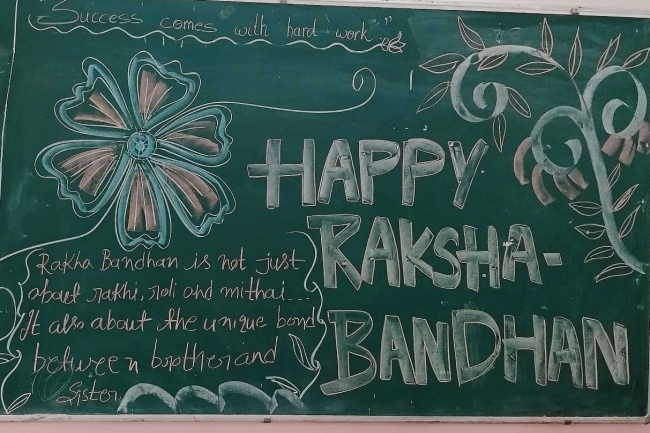 "Success comes with hard work."
HAPPY
RAKSHA-
BANDHAN
Rakha Bandhan is not just
about rakhi, roli and mithai....
It also about the unique bond
between brother and
Sister.